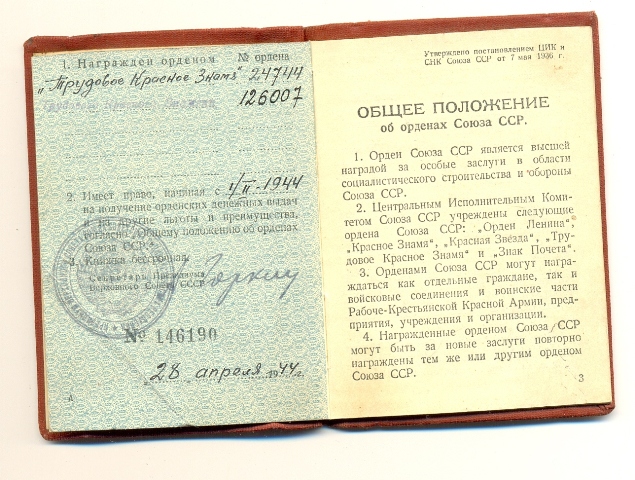 1. Награжден орденом № ордена
„Трудовое Красное Знамя" 24744
Трудовое Красное Знамя
126007
2. Имеет право, начиная с 1/II-1944
на получение орденских денежных выдач
и на другие льготы и преимущества,
согласно „Общему положению об орденах
Союза ССР."
3. Книжка бессрочная.
Секретарь Президиума
Верховного Совета СССР Горкин
№ 146190
„28" апреля 1944 г.
А
Утверждено постановлением ЦИК и
СНК Союза ССР от 7 мая 1936 г.
ОБЩЕЕ ПОЛОЖЕНИЕ
об орденах Союза ССР.
1. Орден Союза ССР является высшей
наградой за особые заслуги в области
социалистического строительства и обороны
Союза ССР.
2. Центральным Исполнительным Коми-
тетом Союза ССР учреждены следующие
ордена Союза ССР: „Орден Ленина",
„Красное Знамя", „Красная Звезда", „Тру-
довое Красное Знамя" и „Знак Почета".
3. Орденами Союза ССР могут награ-
ждаться как отдельные граждане, так и
войсковые соединения и воинские части
Рабоче-Крестьянской Красной Армии, пред-
приятия, учреждения и организации.
4. Награжденные орденом Союза ССР
могут быть за новые заслуги повторно
награждены тем же или другим орденом
Союза ССР.
3